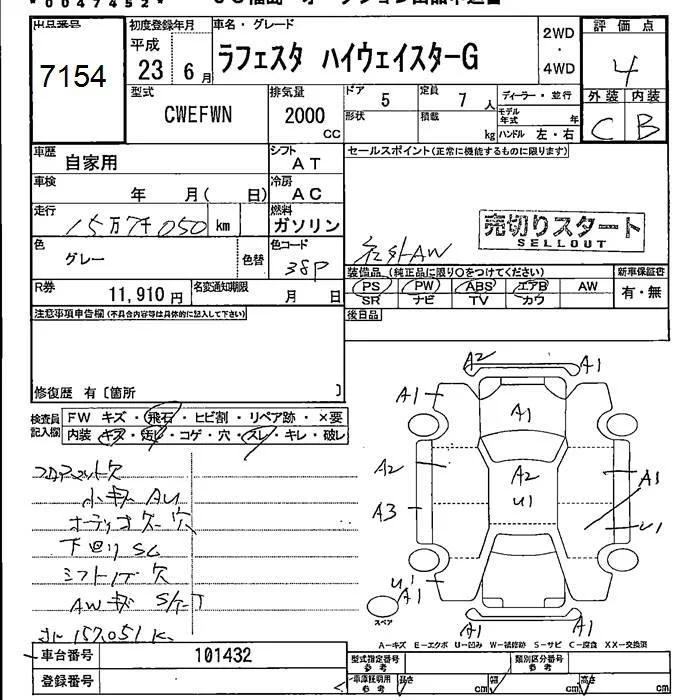 *0047452*
出品番号
7154
初度登録年月
平成
23 6月
車名・グレード
ラフェスタ ハイウェイスターG
2WD
・
4WD
評価点
4
外装 内装
C B
型式
CWEFWN
排気量
2000
CC
ドア 5
定員 7 人
形状
積載
kg
ディーラー・並行
モデル
年式 年
ハンドル 左・右
車歴
自家用
シフト
AT
車検
年 月( 日)
冷房
AC
走行
15万7千050 km
燃料
ガソリン
色
グレー
色替
色コード
38P
R券
11,910円
名変通知期限
月 日
セールスポイント(正常に機能するものに限ります)
売切りスタート
SELLOUT
社外AW
装備品(純正品に限り○をつけてください)
PS PW ABS エアB AW
SR ナビ TV カワ
新車保証書
有・無
後日品
注意事項申告欄(不具合内容等は具体的に記入して下さい)
修復歴 有〔箇所 〕
検査員
記入欄
FW キズ・飛石・ヒビ割・リペア跡・×要
内装 キズ・汚レ・コゲ・穴・スレ・キレ・破レ
フロアマット欠
小キズ AU
下回り SC
シフトノブ 欠
AW キズ
157,051 K
A2 A1
A1 A1
A1
A2 A2
U1 A1
A3 U1
U1
A1
A1 A1
スペア
A-キズ E-エクボ U-凹み W-補修跡 S-サビ C-腐食 XX-交換済
車台番号 101432
登録番号
型式指定番号
参考
類別区分番号
参考
車庫証明用
参考
長さ cm 幅 cm 高さ cm